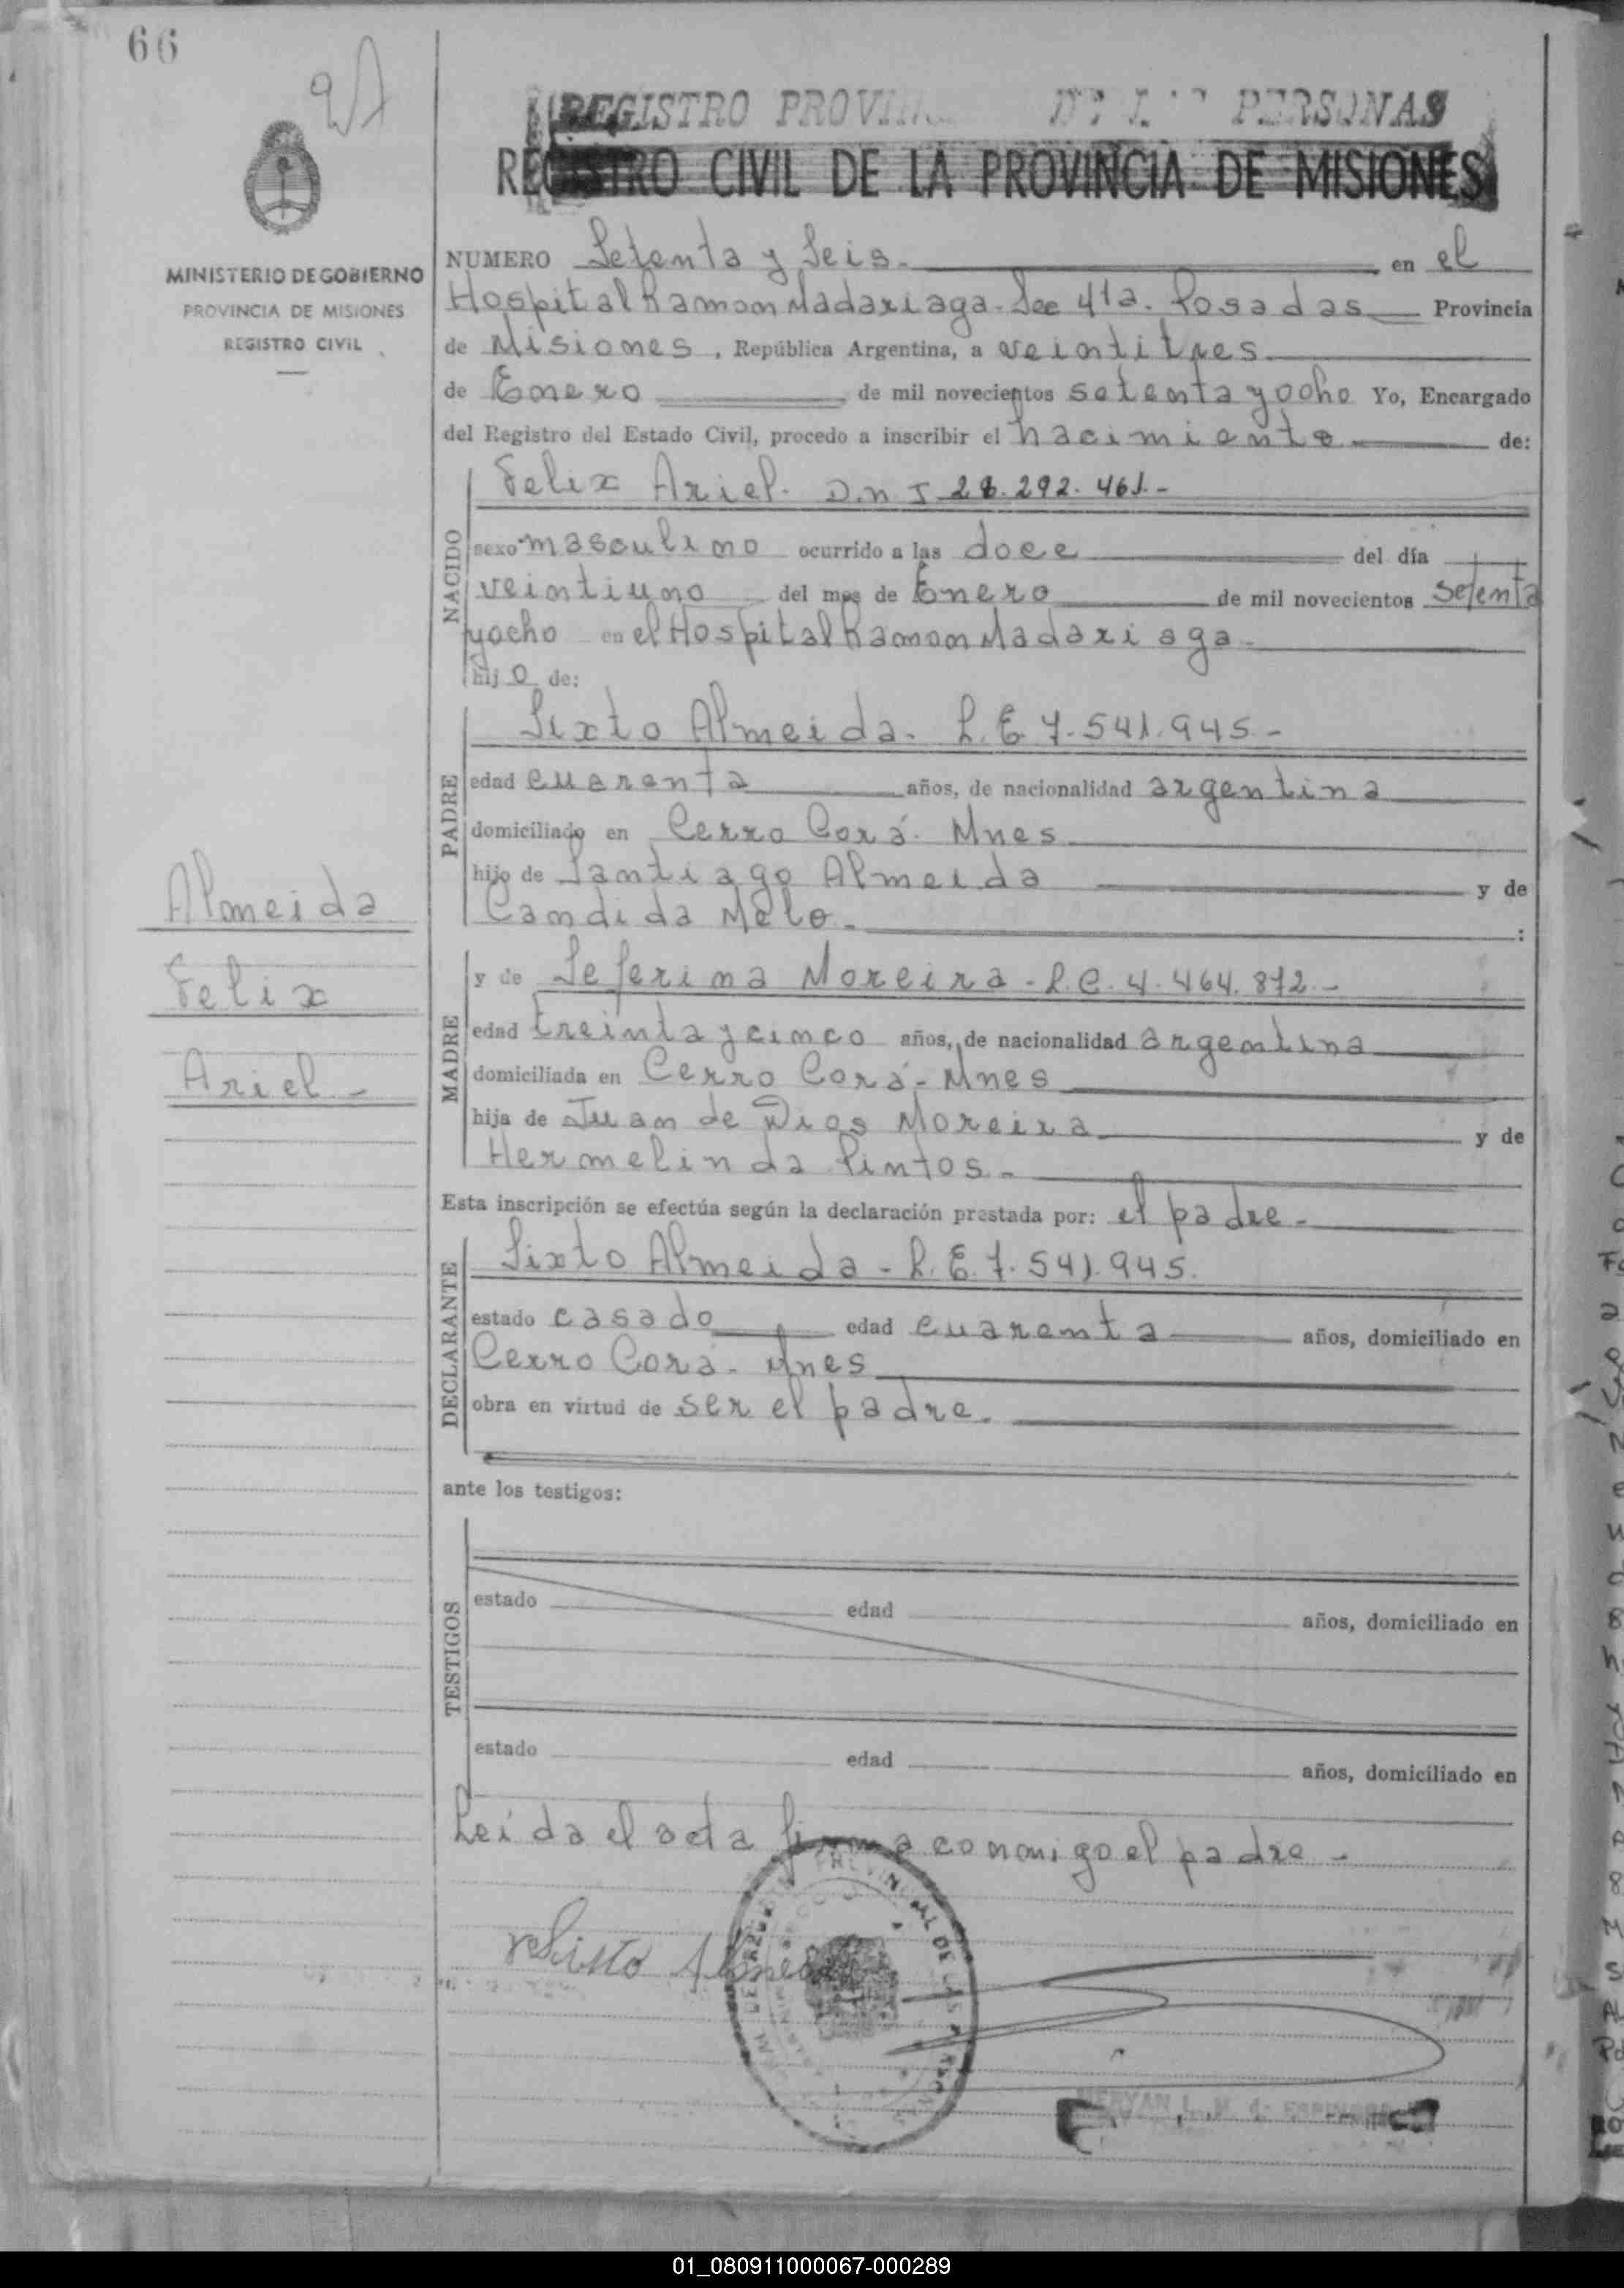 66
REGISTRO PROVIN PERSONAS
REGISTRO CIVIL DE LA PROVINCIA DE MISIONES
MINISTERIO DE GOBIERNO
PROVINCIA DE MISIONES
REGISTRO CIVIL
NUMERO Setenta y Seis.- en el
Hospital Ramon Madariaga - Sec 41a. Posadas Provincia
de Misiones, República Argentina, a veintitres
de Enero de mil novecientos setenta y ocho Yo, Encargado
del Registro del Estado Civil, procedo a inscribir el nacimiento de:
NACIDO
Felix Ariel. D.N.I 28.292.461.-
sexo masculino ocurrido a las doce del día
veintiuno del mes de Enero de mil novecientos setenta
y ocho en el Hospital Ramon Madariaga.
hijo de:
PADRE
Sixto Almeida. L.E 7.541.945.-
edad cuarenta años, de nacionalidad argentina
domiciliado en Cerro Corá. Mnes
hijo de Santiago Almeida y de
Candida Melo.- :
Almeida
Felix
Ariel.-
MADRE
y de Seferina Moreira - L.C. 4.464.872.-
edad treinta y cinco años, de nacionalidad argentina
domiciliada en Cerro Corá - Mnes
hija de Juan de Dios Moreira y de
Hermelinda Pintos.-
Esta inscripción se efectúa según la declaración prestada por: el padre.-
DECLARANTE
Sixto Almeida - L.E. 7.541.945.
estado casado edad cuarenta años, domiciliado en
Cerro Corá - Mnes
obra en virtud de ser el padre.
ante los testigos:
TESTIGOS
estado edad años, domiciliado en
estado edad años, domiciliado en
Leída el acta firma conmigo el padre.-
Almeida
01_080911000067-000289